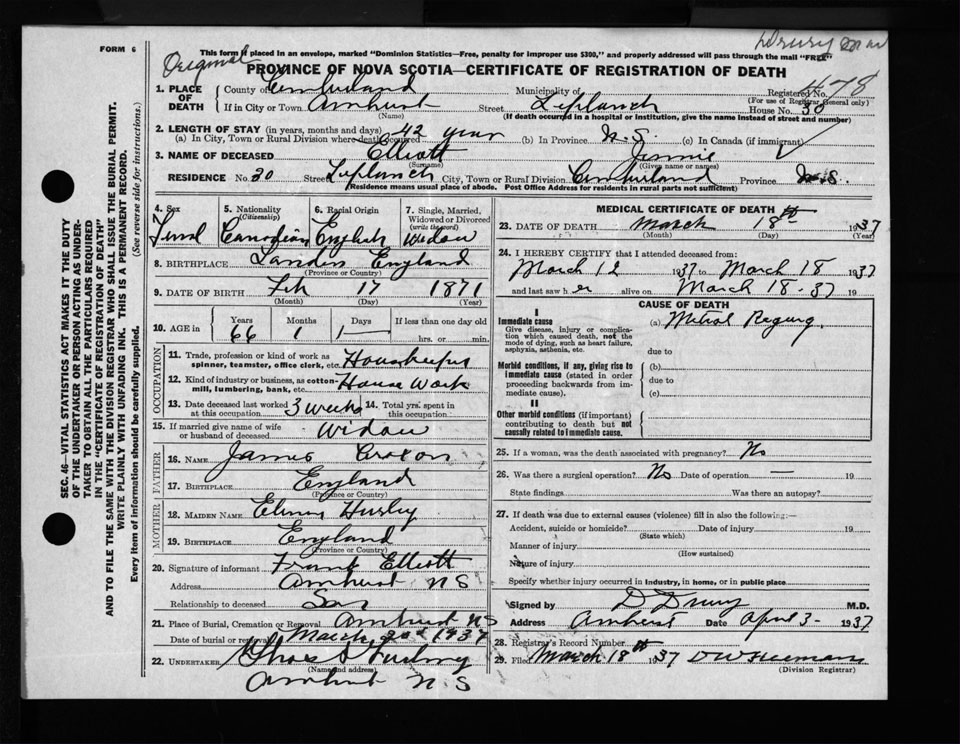 Drury
FORM 6
This form if placed in an envelope, marked "Dominion Statistics—Free, penalty for improper use $300," and properly addressed will pass through the mail "FREE"
Original
PROVINCE OF NOVA SCOTIA—CERTIFICATE OF REGISTRATION OF DEATH
1. PLACE OF DEATH
County of Cumberland Municipality of Registered No. 478
(For use of Registrar General only)
If in City or Town Amherst Street Leplanch House No. 30
(Name) (If death occurred in a hospital or institution, give the name instead of street and number)
2. LENGTH OF STAY (in years, months and days)
(a) In City, Town or Rural Division where death occurred 42 year (b) In Province N.S. (c) In Canada (if immigrant)
3. NAME OF DECEASED Elliott Jennie
(Surname) (Given name or names)
RESIDENCE No. 30 Street Leplanch City, Town or Rural Division Cumberland Province N.S.
(Residence means usual place of abode. Post Office Address for residents in rural parts not sufficient)
4. Sex 5. Nationality (Citizenship) 6. Racial Origin 7. Single, Married, Widowed or Divorced (write the word)
Canadian English Widow
8. BIRTHPLACE London England
(Province or Country)
9. DATE OF BIRTH Feb 17 1871
(Month) (Day) (Year)
10. AGE in Years Months Days If less than one day old
66 1 1 hrs. or min.
OCCUPATION
11. Trade, profession or kind of work as spinner, teamster, office clerk, etc. Housekeeper
12. Kind of industry or business, as cotton-mill, lumbering, bank, etc. House Work
13. Date deceased last worked at this occupation 3 weeks 14. Total yrs. spent in this occupation
15. If married give name of wife or husband of deceased Widow
FATHER
16. NAME James Croxon
17. BIRTHPLACE England
(Province or Country)
MOTHER
18. MAIDEN NAME
19. BIRTHPLACE England
(Province or Country)
20. Signature of informant Frank Elliott
Address Amherst N S
Relationship to deceased Son
21. Place of Burial, Cremation or Removal Amherst NS
Date of burial or removal March 20th 1937
22. UNDERTAKER
(Name and address)
Amherst N.S
MEDICAL CERTIFICATE OF DEATH
23. DATE OF DEATH March 18th 1937
(Month) (Day) (Year)
24. I HEREBY CERTIFY that I attended deceased from:
March 12 1937 to March 18 1937
and last saw her alive on March 18-37 19
CAUSE OF DEATH
I
Immediate cause (a) Mitral Regurg.
Give disease, injury or complication which caused death, not the mode of dying, such as heart failure, asphyxia, asthenia, etc.
due to
Morbid conditions, if any, giving rise to immediate cause (stated in order proceeding backwards from immediate cause).
(b)
due to
(c)
II
Other morbid conditions (if important) contributing to death but not causally related to immediate cause.
25. If a woman, was the death associated with pregnancy? No
26. Was there a surgical operation? No Date of operation — 19
State findings Was there an autopsy?
27. If death was due to external causes (violence) fill in also the following:—
Accident, suicide or homicide? Date of injury 19
(State which)
Manner of injury
(How sustained)
Nature of injury
Specify whether injury occurred in industry, in home, or in public place
Signed by D Drury M.D.
Address Amherst Date April 3- 1937
28. Registrar's Record Number
29. Filed March 18th 1937
(Division Registrar)
SEC. 46—VITAL STATISTICS ACT MAKES IT THE DUTY
OF THE UNDERTAKER OR PERSON ACTING AS UNDER-
TAKER TO OBTAIN ALL THE PARTICULARS REQUIRED
IN THE "CERTIFICATE OF REGISTRATION OF DEATH"
AND TO FILE THE SAME WITH THE DIVISION REGISTRAR WHO SHALL ISSUE THE BURIAL PERMIT.
WRITE PLAINLY WITH UNFADING INK. THIS IS A PERMANENT RECORD.
Every item of information should be carefully supplied. (See reverse side for instructions.)